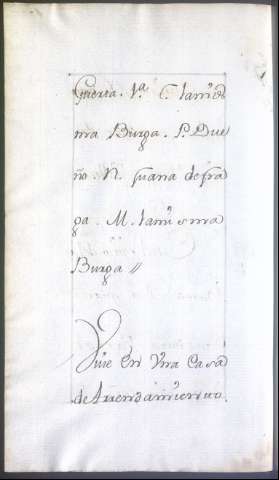 Puerta. 1ª. C. la mis
ma Burga. P. Due
ño. N. Juana de fra
ga. M. la misma
Burga //
Vive En Vna Casa
de Arrendamiento.